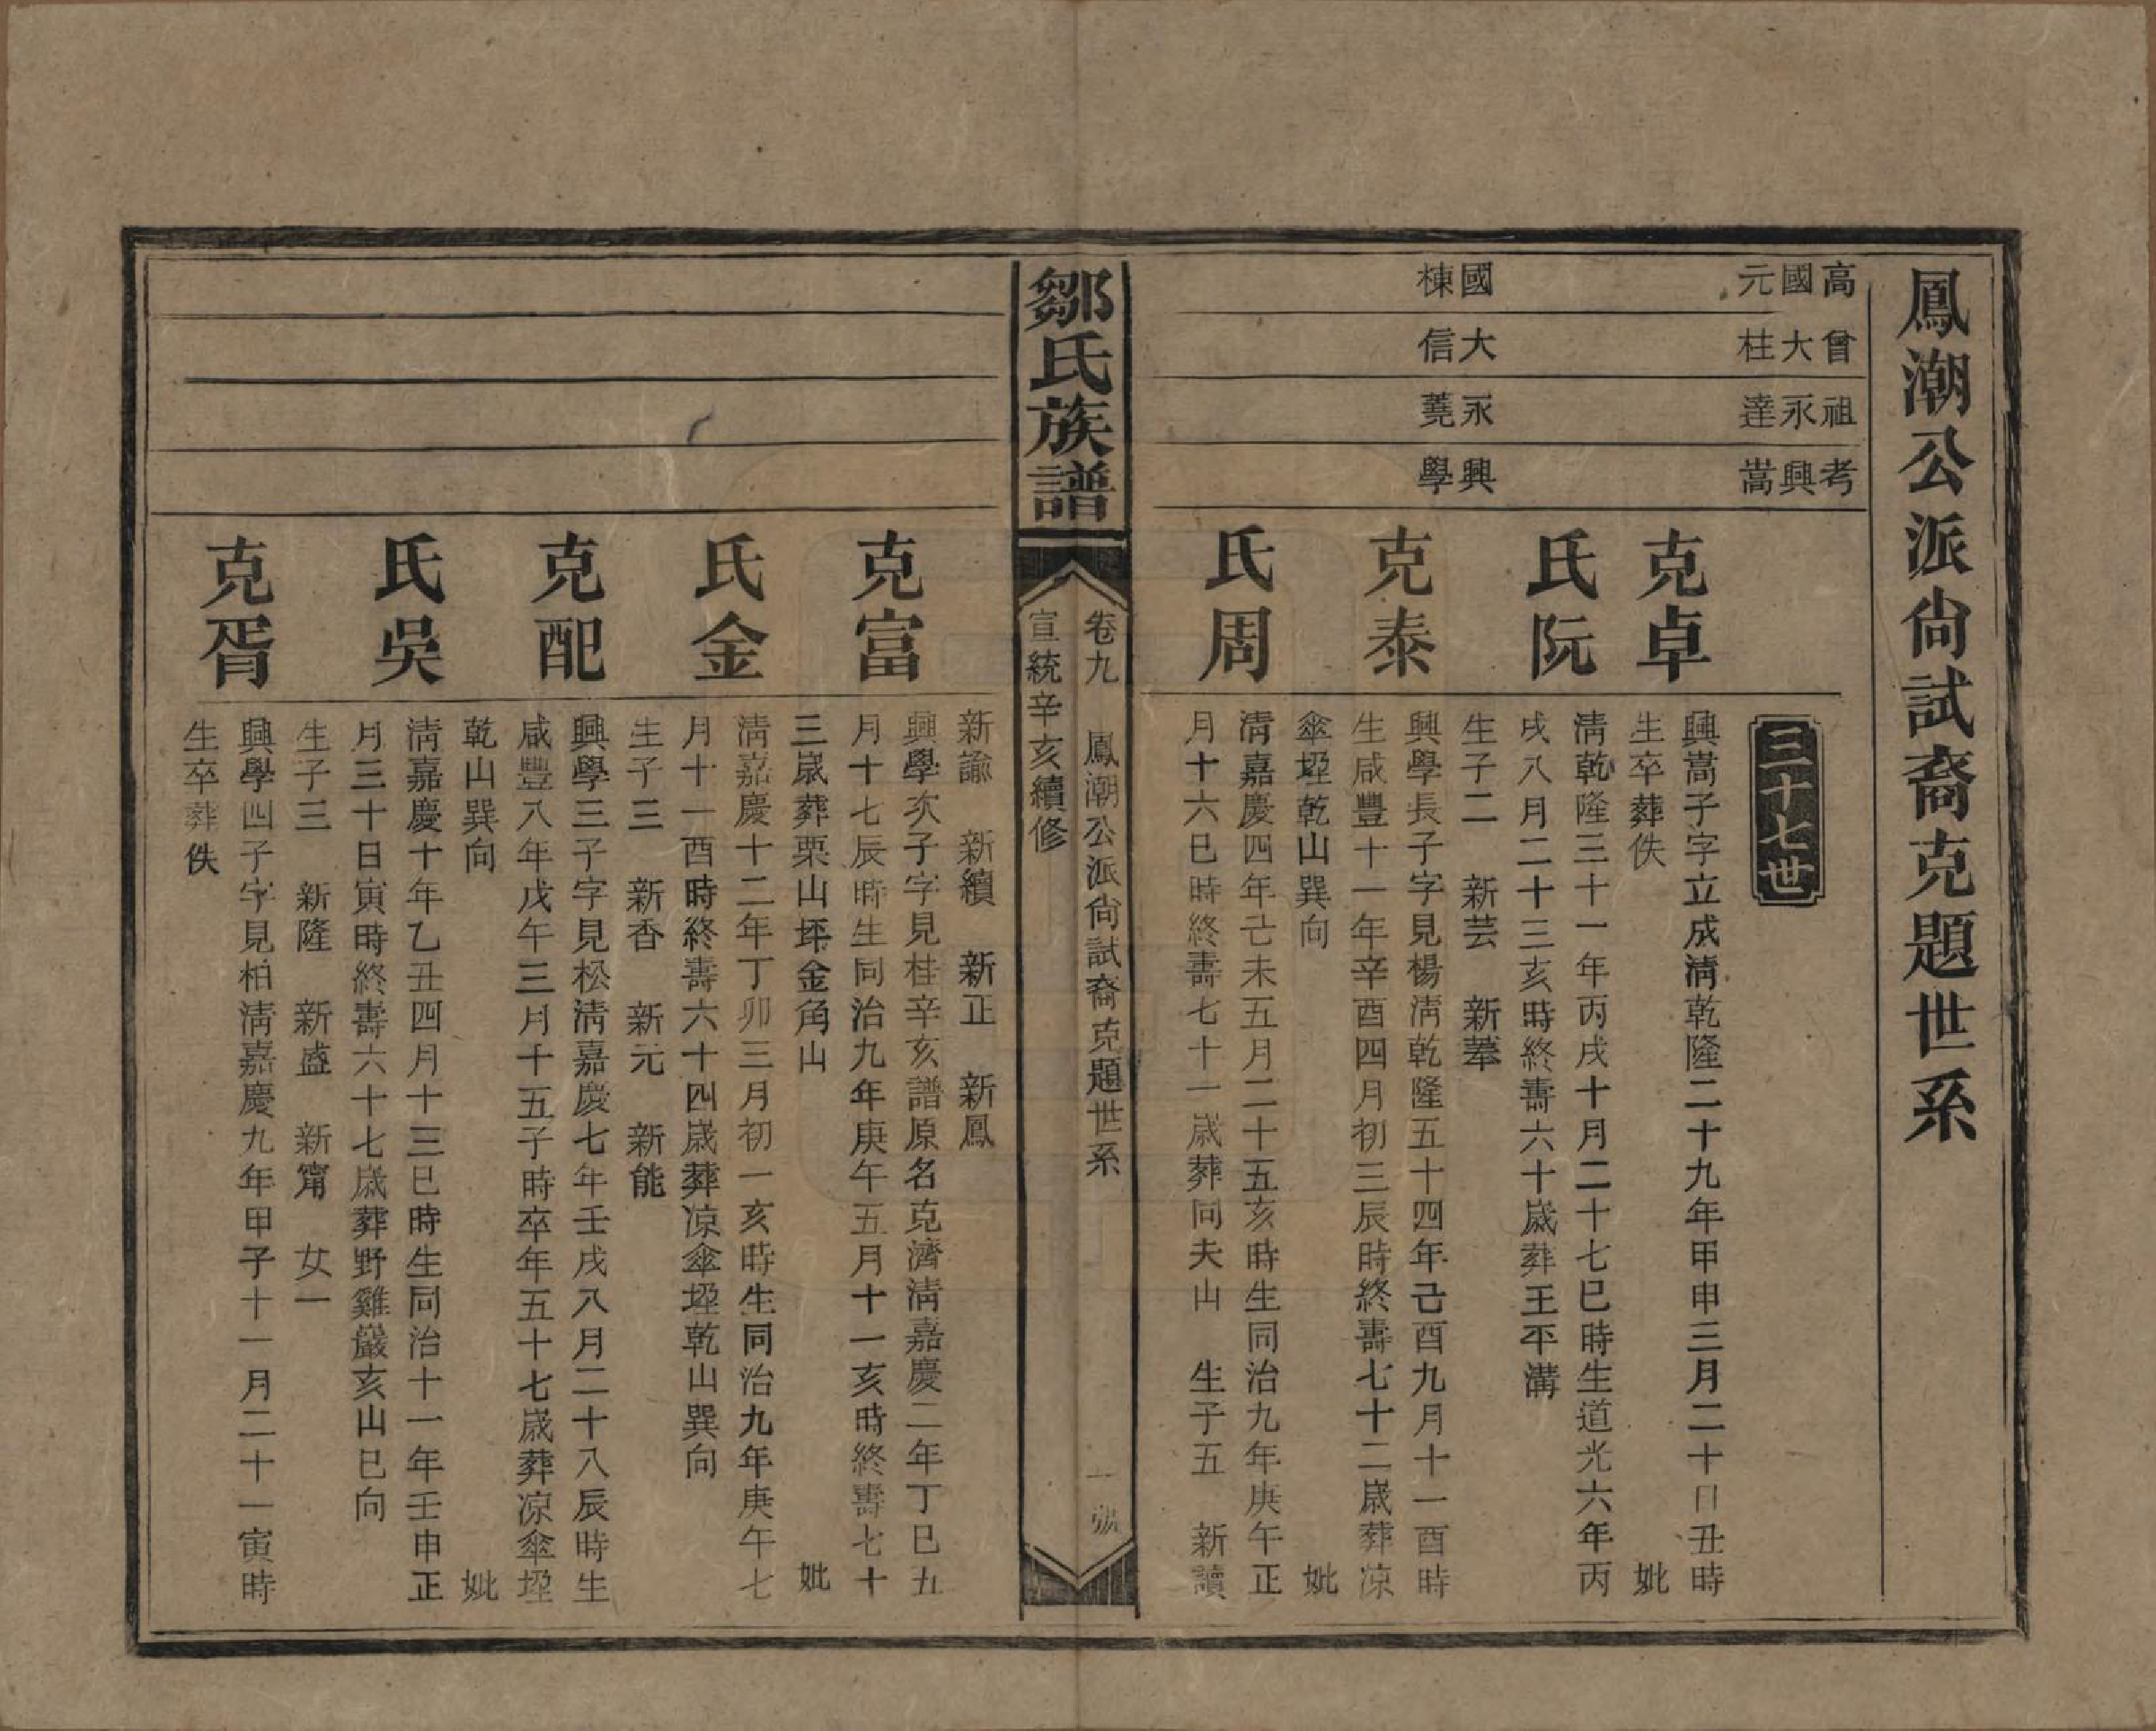 鳳潮公派尙試裔克題世系
高 曾 祖 考
國元 大柱 永達 興嵩
三十七世
克卓
興嵩子字立成淸乾隆二十九年甲申三月二十日丑時
生卒葬佚 妣
氏阮
淸乾隆三十一年丙戌十月二十七巳時生道光六年丙
戌八月二十三亥時終壽六十歲葬王平溝
生子二 新芸 新菶
國棟 大信 永蕘 興學
克泰
興學長子字見楊淸乾隆五十四年己酉九月十一酉時
生咸豐十一年辛酉四月初三辰時終壽七十二歲葬凉
傘埕乾山巽向 妣
氏周
淸嘉慶四年己未五月二十五亥時生同治九年庚午正
月十六巳時終壽七十一歲葬同夫山 生子五 新讀
鄒氏族譜
卷九 鳳潮公派尙試裔克題世系 一號
宣統辛亥續修
新諭 新續 新正 新鳳
克富
興學次子字見桂辛亥譜原名克濟淸嘉慶二年丁巳五
月十七辰時生同治九年庚午五月十一亥時終壽七十
三歲葬栗山坪金角山 妣
氏金
淸嘉慶十二年丁卯三月初一亥時生同治九年庚午七
月十一酉時終壽六十四歲葬凉傘埕乾山巽向
生子三 新香 新元 新能
克配
興學三子字見松淸嘉慶七年壬戌八月二十八辰時生
咸豐八年戊午三月十五子時卒年五十七歲葬凉傘埕
乾山巽向 妣
氏吳
淸嘉慶十年乙丑四月十三巳時生同治十一年壬申正
月三十日寅時終壽六十七歲葬野雞巖亥山巳向
生子三 新隆 新盛 新甯 女一
克胥
興學四子字見柏淸嘉慶九年甲子十一月二十一寅時
生卒葬佚